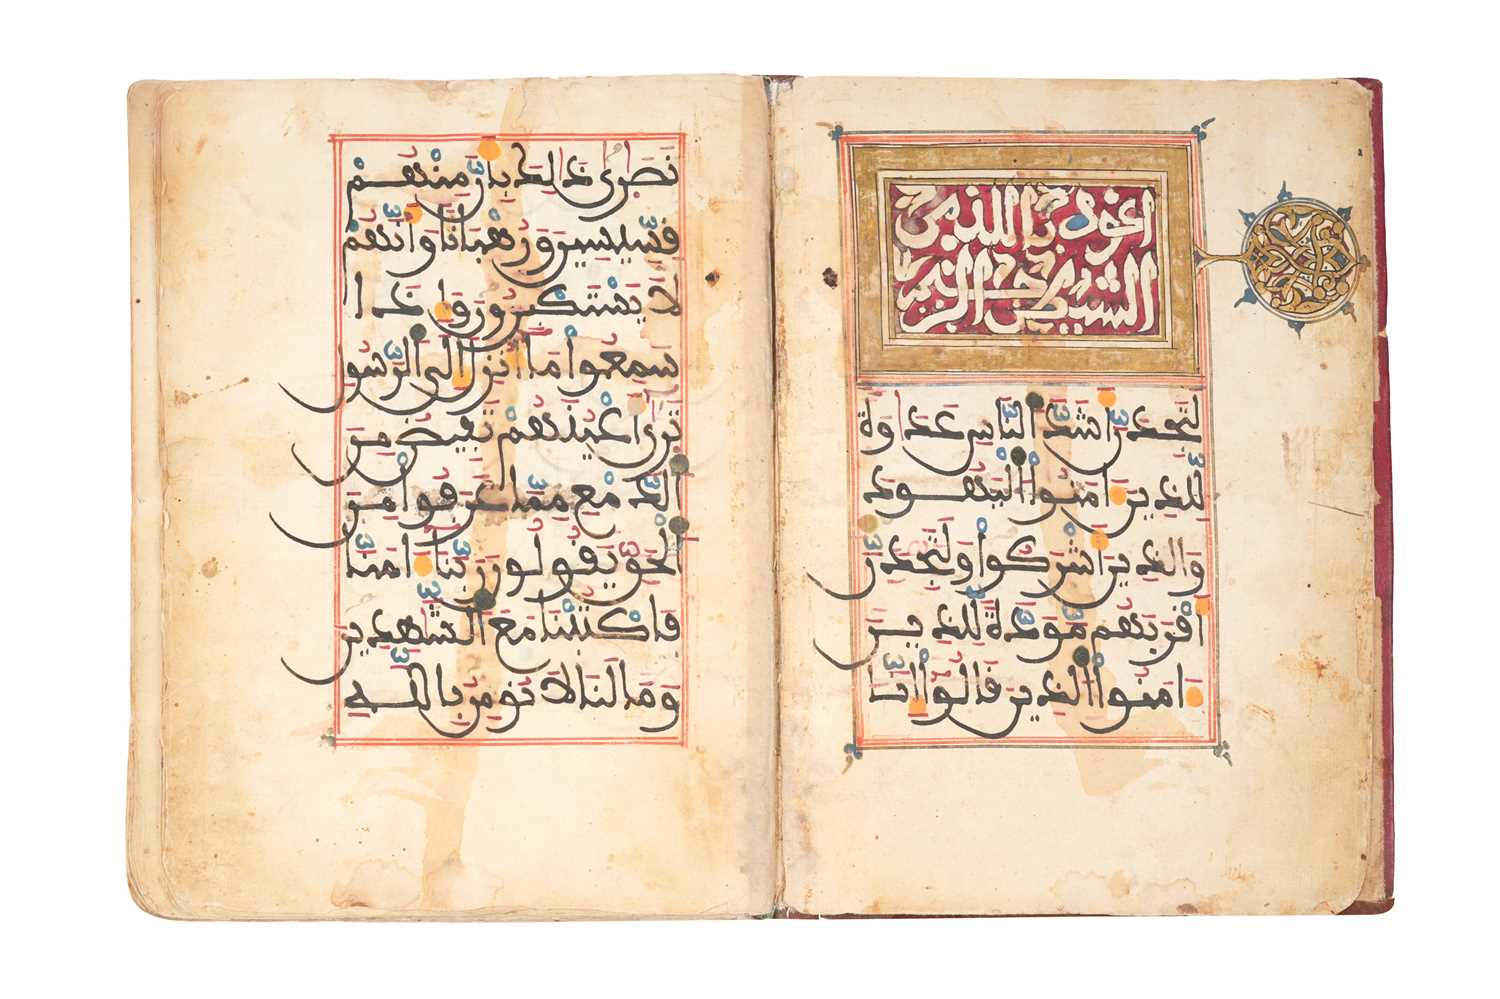 اعوذ بالله من
الشيطن الرجيم
لَتَجِدَنَّ أَشَدَّ النَّاسِ عَدَاوَةً
لِّلذِينَ ءَامَنُوا الْيَهُودَ
وَالذِينَ أَشْرَكُوا وَلَتَجِدَنَّ
أَقْرَبَهُم مَّوَدَّةً لِّلذِينَ
ءَامَنُوا الذِينَ قَالُوا إِنَّا
نَصَٰرَىٰ ذَٰلِكَ بِأَنَّ مِنْهُمْ
قِسِّيسِينَ وَرُهْبَانًا وَأَنَّهُمْ
لَا يَسْتَكْبِرُونَ وَإِذَا
سَمِعُوا مَا أُنزِلَ إِلَى الرَّسُولِ
تَرَىٰ أَعْيُنَهُمْ تَفِيضُ مِنَ
الدَّمْعِ مِمَّا عَرَفُوا مِنَ
الْحَقِّ يَقُولُونَ رَبَّنَا ءَامَنَّا
فَاكْتُبْنَا مَعَ الشَّٰهِدِينَ
وَمَا لَنَا لَا نُومِنُ بِاللَّهِ